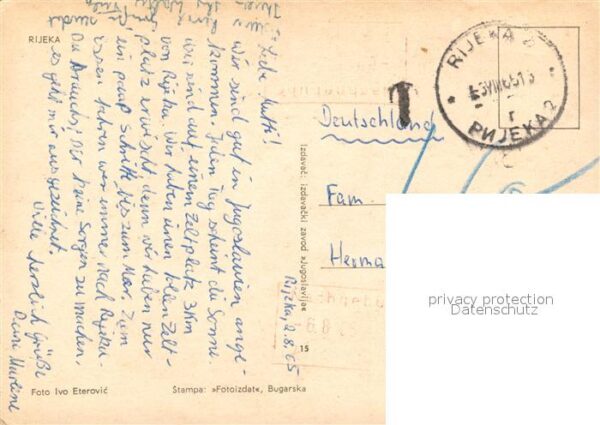 RIJEKA
Rijeka, 2.8.65
Liebe Mutti!
Wir sind gut in Jugoslavien ange-
kommen. Jeden Tag scheint die Sonne.
Wir sind auf einem Zeltplatz 3km
von Rijeka. Wir haben einen tollen Zelt-
platz erwischt denn wir haben nur
ein paar Schritte bis zum Meer. Zum
essen fahren wir immer nach Rijeka.
Du brauchst Dir keine Sorgen zu machen,
es geht mir ausgezeichnet.
Viele herzlich Grüße
Deine Marlene
Foto Ivo Eterović
Štampa: »Fotoizdat«, Bugarska
Izdavač: izdavački zavod »Jugoslavija«
15
T
RIJEKA 2
РИЈЕКА 2
Deutschland
Fam.
Herma
privacy protection
Datenschutz